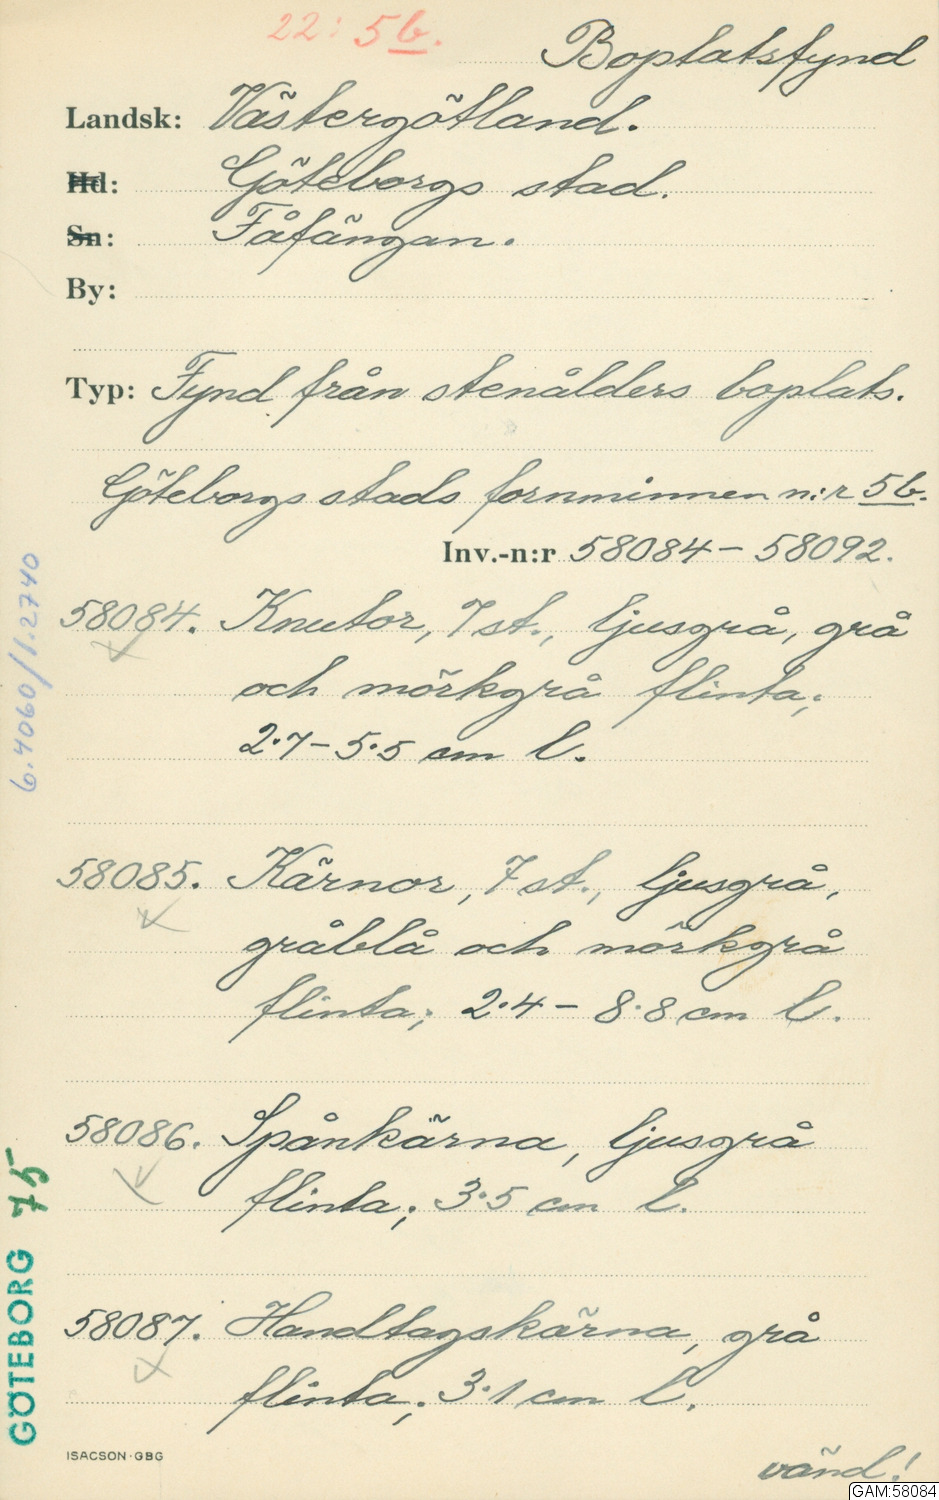 22: 5b.
Boplatsfynd
Landsk: Västergötland.
Hd: Göteborgs stad.
Sn: Fåfängan.
By:
Typ: Fynd från stenålders boplats.
Göteborgs stads fornminnen n:r 5b.
Inv.-n:r 58084 – 58092.
58084. Knutor, 7 st., ljusgrå, grå
och mörkgrå flinta;
2.7 – 5.5 cm l.
58085. Kärnor, 7 st., ljusgrå,
gråblå och mörkgrå
flinta; 2.4 – 8.8 cm l.
58086. Spånkärna, ljusgrå
flinta; 3.5 cm l.
58087. Handtagskärna, grå
flinta; 3.1 cm l.
ISACSON·GBG
vänd!
6.4060/1.2740
GÖTEBORG 75
GAM:58084